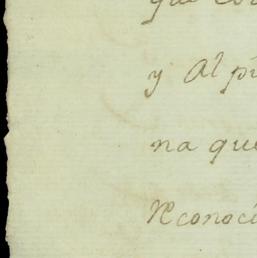 que co
y Al p
na que
Reconoci